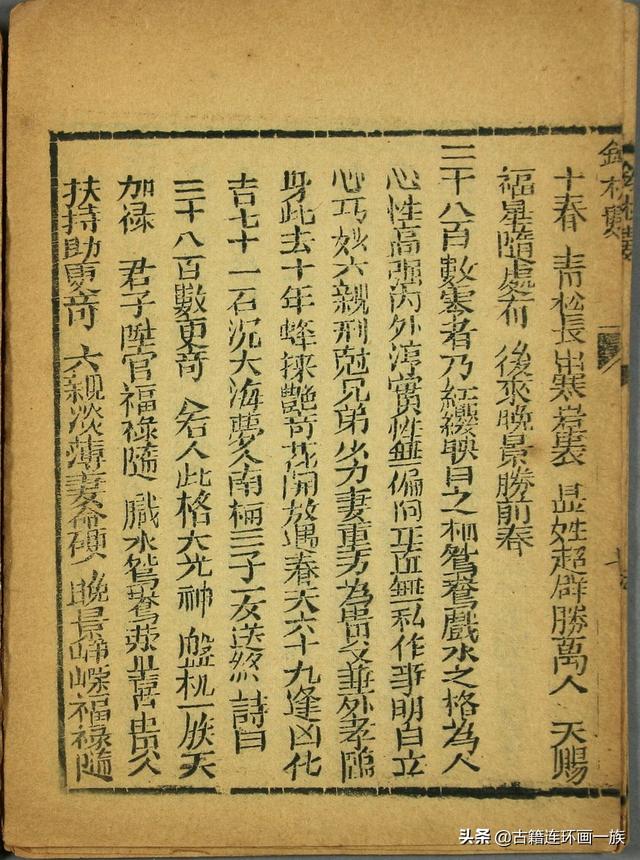 十春 青松長出寒岩裏 显姓超群勝萬人 天賜
福星隨處布 後來晚景勝前春
三千八百數寒者乃紅纓映日之柳鴛鴦戲水之格為人
心性高强内外淳實性無偏向正直無私作事明白立
心巧妙六親刑尅兄弟少力妻重方為貴父垂外孝臨
身此去十年蜂採艷奇花開放遇春天六十九逢凶化
吉七十一石沉大海夢入南柯三子一女送終 詩曰
三千八百數更奇 若人此格大光神 机一 天
加禄 君子陞官福禄隨 戲水鴛鴦並 貴父
扶持助更奇 六親淡薄妻侖硬 晚景崢嶸福禄隨
头条 @古籍连环画一族